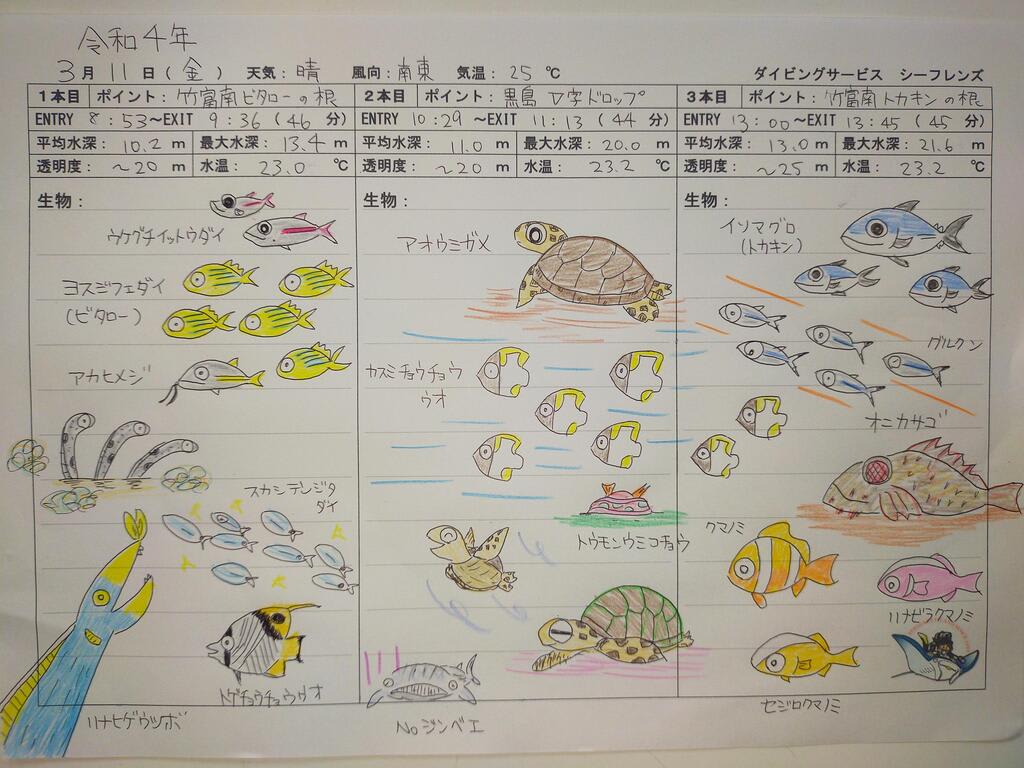 令和4年
3月 11日(金) 天気:晴 風向:南東 気温:25℃ ダイビングサービス シーフレンズ
1本目 ポイント:竹富南ビタローの根
ENTRY 8:53~EXIT 9:36(46分)
平均水深:10.2m 最大水深:13.4m
透明度:~20m 水温:23.0℃
生物:
ウケグチイットウダイ
ヨスジフエダイ
(ビタロー)
アカヒメジ
スカシテンジク
ダイ
トゲチョウチョウウオ
ハナヒゲウツボ
2本目 ポイント:黒島 V字ドロップ
ENTRY 10:29~EXIT 11:13(44分)
平均水深:11.0m 最大水深:20.0m
透明度:~20m 水温:23.2℃
生物:
アオウミガメ
カスミチョウチョウ
ウオ
トウモンウミコチョウ
Noジンベエ
3本目 ポイント:竹富南トカキンの根
ENTRY 13:00~EXIT 13:45(45分)
平均水深:13.0m 最大水深:21.6m
透明度:~25m 水温:23.2℃
生物:
イソマグロ
(トカキン)
グルクン
オニカサゴ
クマノミ
ハナビラクマノミ
セジロクマノミ